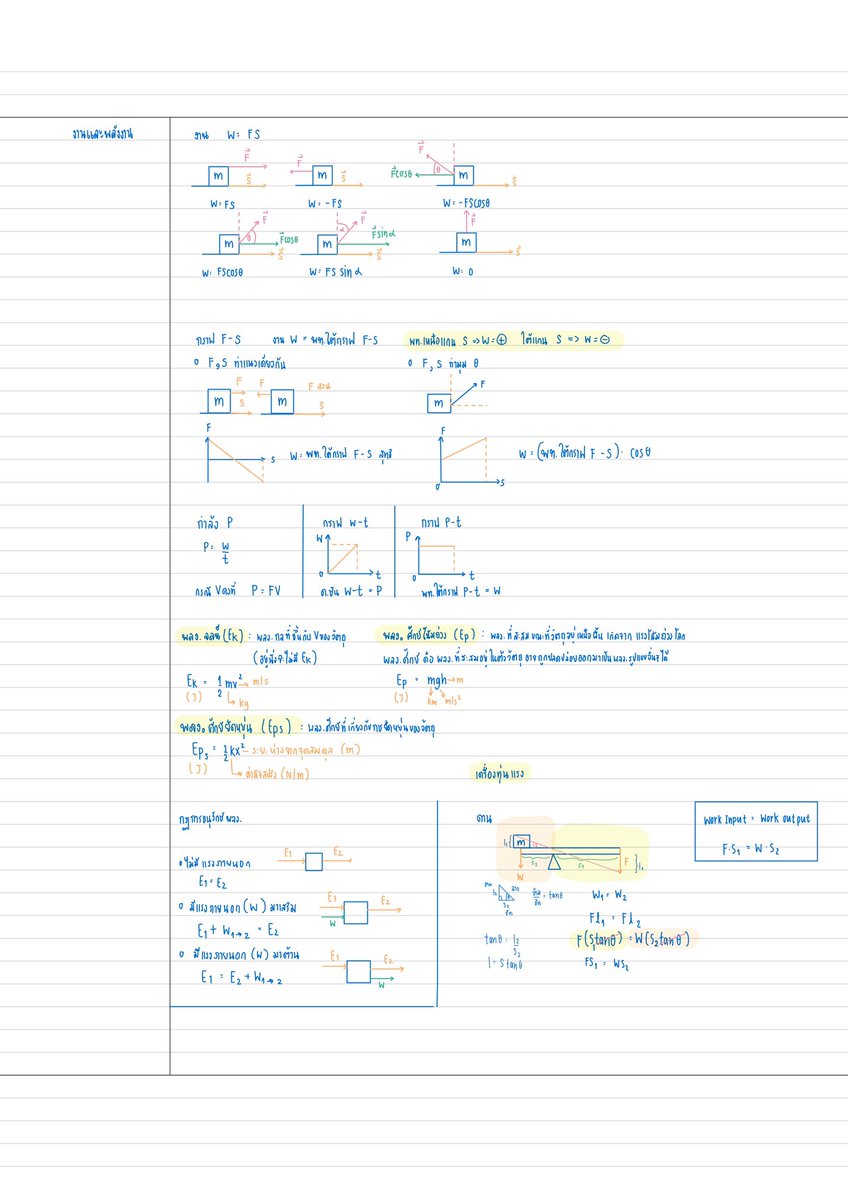 งานและพลังงาน
งาน W = FS
F F F
m m Fcosθ θ m
S S S
W = FS W = -FS W = -FScosθ
F α F F
m θ Fcosθ m Fsinα m
S S S
W = FScosθ W = FS sinα W = 0
กราฟ F-S งาน W = พท.ใต้กราฟ F-S พท.เหนือแกน S => W = ⊕ ใต้แกน S => W = ⊖
o F,S ทำแนวเดียวกัน o F,S ทำมุม θ
F F F สวน F
m S m S m
F F
S W = พท.ใต้กราฟ F-S สุทธิ W = (พท.ใต้กราฟ F-S)·cosθ
0 S
กำลัง P กราฟ W-t กราฟ P-t
P = W/t W P
0 t 0 t
กรณี V คงที่ P = FV ค.ชัน W-t = P พท.ใต้กราฟ P-t = W
พลง.จลน์ (Ek) : พลง.กลที่ขึ้นกับ V ของวัตถุ
(อยู่นิ่งจะไม่มี Ek)
Ek = 1/2 mv² → m/s
(J) kg
พลง.ศักย์โน้มถ่วง (Ep) : พลง.ที่สะสมขณะที่วัตถุอยู่เหนือพื้น เกิดจาก แรงโน้มถ่วงโลก
พลง.ศักย์ คือ พลง.ที่สะสมอยู่ในตัววัตถุ อาจถูกปลดปล่อยออกมาเป็นพลง.รูปแบบอื่นๆได้
Ep = mgh → m
(J) km m/s²
พลง.ศักย์ยืดหยุ่น (Eps) : พลง.ศักย์ที่เกี่ยวกับการยืดหยุ่นของวัตถุ
Eps = 1/2 kx² - ระยะห่างจากจุดสมดุล (m)
(J) ค่านิจสปริง (N/m)
กฎการอนุรักษ์ พลง.
o ไม่มีแรงภายนอก E1 E2
E1 = E2
o มีแรงภายนอก (W) มาเสริม E1 E2
E1 + W1→2 = E2 W
o มีแรงภายนอก (W) มาต้าน E1 E2
E1 = E2 + W1→2 W
เครื่องทุ่นแรง
คาน
Work Input = Work output
F·S1 = W·S2
m
W F
W1 = W2
Fl1 = Fl2
tanθ = l2/S2 F(S1tanθ) = W(S2tanθ)
l = S tanθ FS1 = WS2